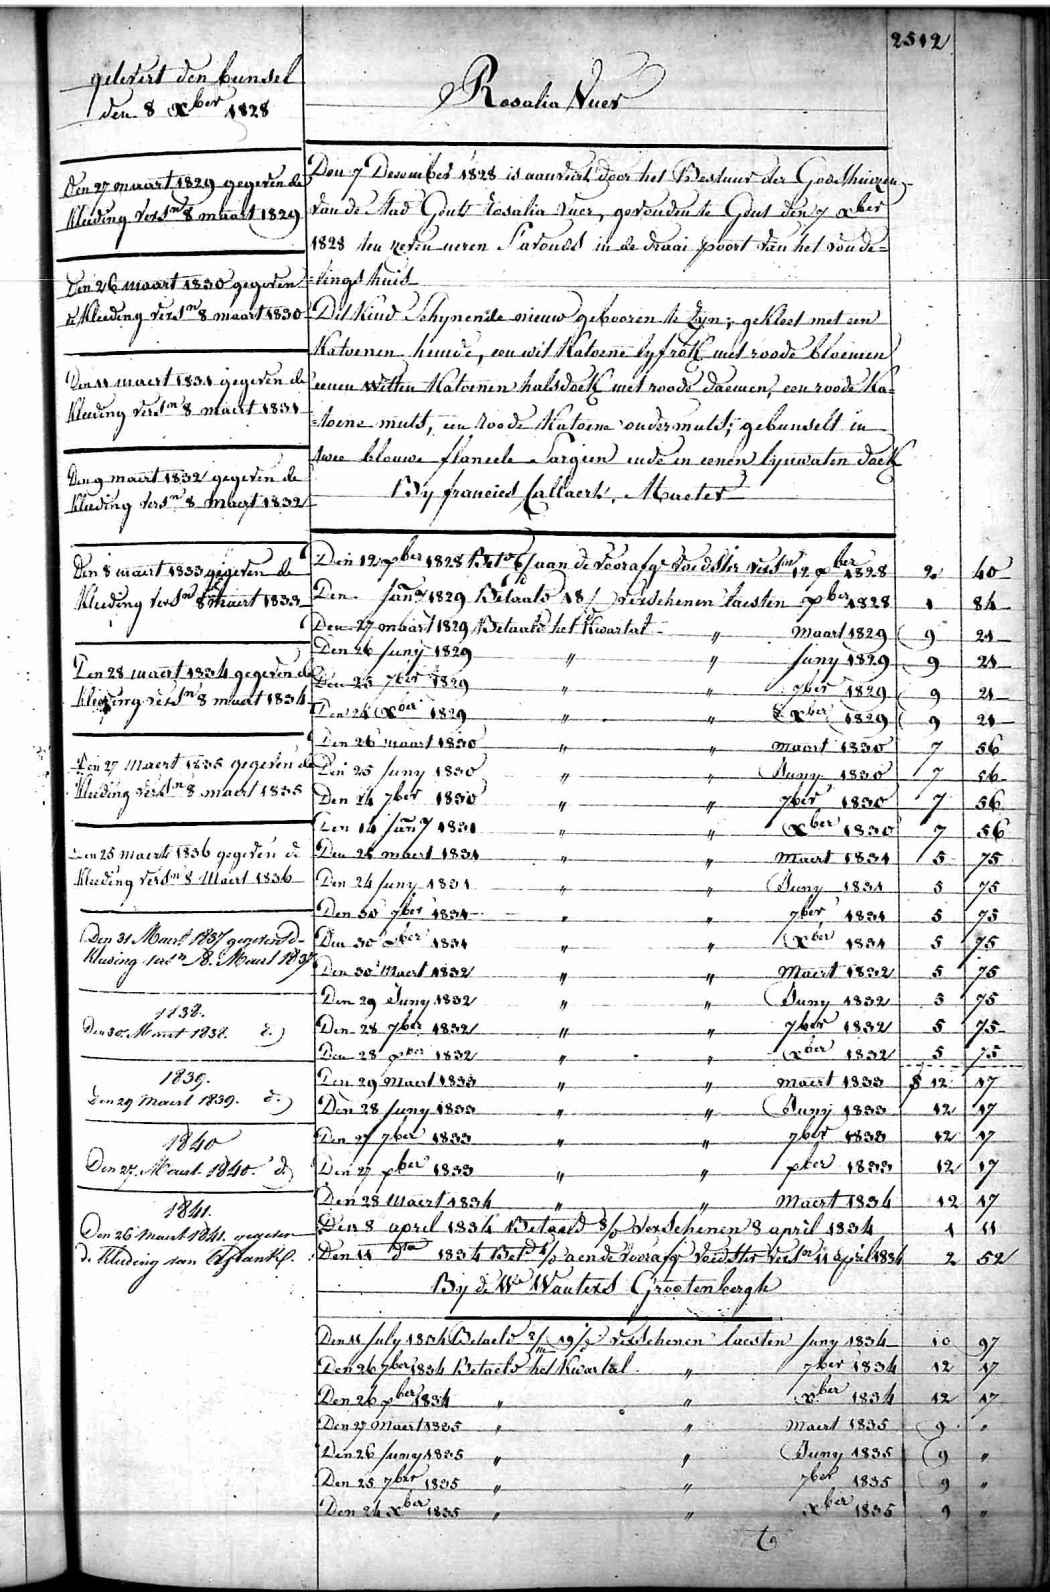 2512
gelevert den bunsel
den 8 Xber 1828
Rosalia Vuer
Den 27 maart 1829 gegeven de
kleeding versn 8 maart 1829
Den 26 maart 1830 gegeven
de kleeding versn 8 maart 1830
Den 11 maert 1831 gegeven de
kleeding versn 8 maert 1831
Den 9 maert 1832 gegeven de
kleeding versn 8 maert 1832
Den 8 maert 1833 gegeven de
kleeding versn 8 maert 1833
Den 28 maert 1834 gegeven de
kleeding versn 8 maert 1834
Den 27 Maert 1835 gegeven de
kleeding versn 8 maert 1835
Den 25 maert 1836 gegeven de
kleeding versn 8 Maert 1836
Den 31 Maert 1837 gegeven d
kleeding versn 8. Maert 1837
1838.
Den 30. Maert 1838. d.)
1839.
Den 29 Maert 1839. d.)
1840
Den 27. Maert. 1840. d)
1841.
Den 26 Maert 1841. gegeven
d. kleeding van
Den 7 December 1828 is aanveird door het Bestuur der Godshuizen
van de stad Gent Rosalia Vuer, gevonden te Gent den 7 Xber
1828 ten zeven uren s'avonds in de draai poort van het vonde=
=lings huis
Dit kind schynende nieuw gebooren te zyn; gekleet met een
katoenen hemde, een wit katoene lyfrok met roode bloemen
eenen witten katoenen halsdoek met roode daemen, een roode ka=
=toene muts, een roode katoene ondermuts; gebunselt in
twee blouwe flaneele Sargien ende in eenen lynwaten doek
By francies Callaert, Maeter
Den 12 Xber 1828 Bet. aan de voorafge voedster versn 12 Xber 1828 2 40
Den Jany 1829 Betaald 18/ verschenen laesten Xber 1828 1 84
Den 27 maart 1829 Betaald het Kwartal " Maart 1829 9 21
Den 26 Juny 1829 " " Juny 1829 9 21
Den 25 7ber 1829 " " 7ber 1829 9 21
Den 24 Xber 1829 " " Xber 1829 9 21
Den 26 maart 1830 " " maart 1830 7 56
Den 25 Juny 1830 " " Juny 1830 7 56
Den 24 7ber 1830 " " 7ber 1830 7 56
Den 14 Jany 1831 " " Xber 1830 7 56
Den 25 maert 1831 " " Maert 1831 5 75
Den 24 Juny 1831 " " Juny 1831 5 75
Den 30 7ber 1831 " " 7ber 1831 5 75
Den 30 Xber 1831 " " Xber 1831 5 75
Den 30 Maert 1832 " " Maert 1832 5 75
Den 29 Juny 1832 " " Juny 1832 5 75
Den 28 7ber 1832 " " 7ber 1832 5 75
Den 28 Xber 1832 " " Xber 1832 5 75
Den 29 Maert 1833 " " Maert 1833 12 17
Den 28 Juny 1833 " " Juny 1833 12 17
Den 27 7ber 1833 " " 7ber 1833 12 17
Den 27 Xber 1833 " " Xber 1833 12 17
Den 28 Maert 1834 " " Maert 1834 12 17
Den 8 april 1834 Betaeld verschenen 8 april 1834 1 11
Den 11 dto 1834 Betd aen de voorafge voedster versn 11 april 1834 2 52
By de We Wauters Grootenbergh
Den 11 July 1834 Betaeld verschenen laesten Juny 1834 10 97
Den 26 7ber 1834 Betaeld het Kwartal " 7ber 1834 12 17
Den 26 Xber 1834 " " Xber 1834 12 17
Den 27 Maert 1835 " " Maert 1835 9 "
Den 26 Juny 1835 " " Juny 1835 9 "
Den 25 7ber 1835 " " 7ber 1835 9 "
Den 24 Xber 1835 " " Xber 1835 9 "